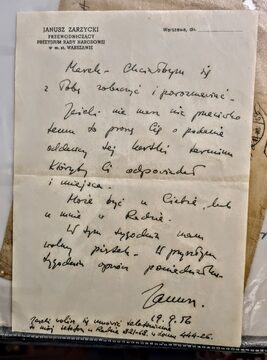 JANUSZ ZARZYCKI
PRZEWODNICZĄCY
PREZYDIUM RADY NARODOWEJ
w m. st. WARSZAWIE
Warszawa, dn.
Marek - Chciałbym się
z Tobą zobaczyć i porozmawiać.
Jeżeli nie masz nic przeciwko
temu to proszę Cię o podanie
oddawcy tej kartki terminu
któryby Ci odpowiadał
i miejsca.
Może być u Ciebie, lub
u mnie w Radzie.
W tym tygodniu mam
wolny piątek. W przyszłym
tygodniu oprócz poniedziałku.
Janusz.
19.9.56
Jeżeli wolisz się umówić telefonicznie
to mój telefon w Radzie, w domu 444-26.